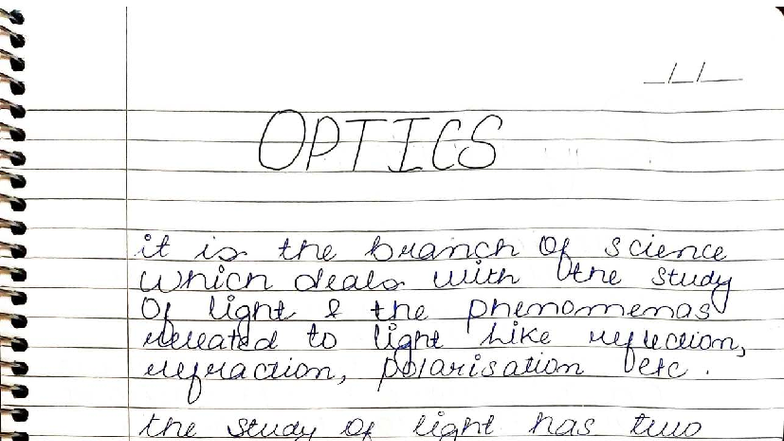 OPTICS
it is the branch of science
which deals with the study
of light & the phenomenas
releated to light like reflection,
refraction, polarisation etc.
the study of light has two